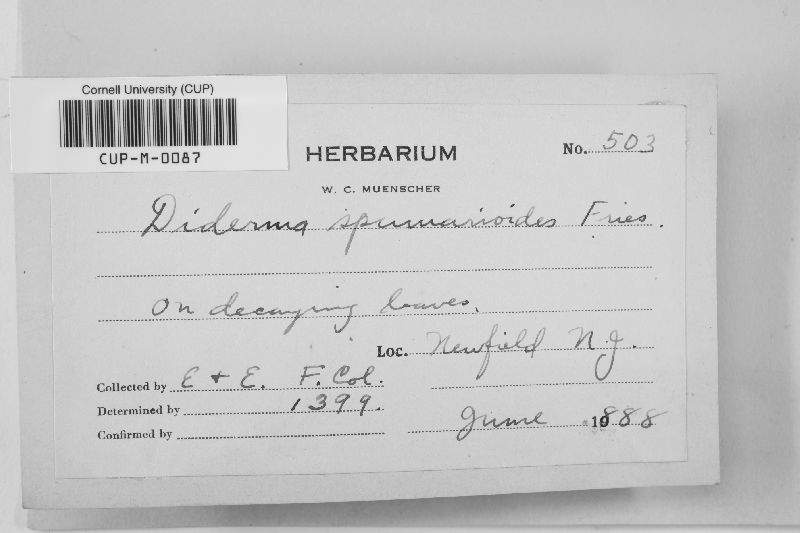 Cornell University (CUP)
CUP-M-0087
HERBARIUM
No. 503
W. C. MUENSCHER
Diderma spumarioides Fries.
On decaying leaves.
Loc. Newfield N.J.
Collected by E + E. F. Col.
Determined by 1399.
Confirmed by
June 1888